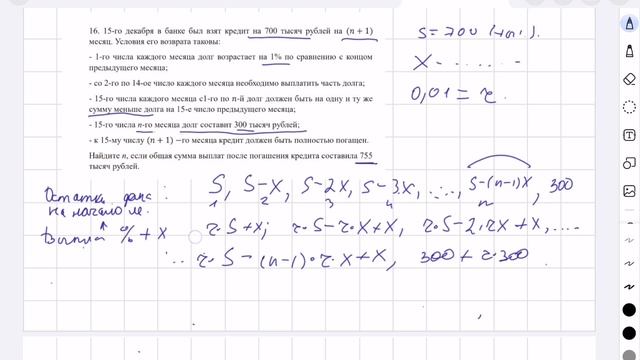 16. 15-го декабря в банке был взят кредит на 700 тысяч рублей на (n + 1)
месяц. Условия его возврата таковы:
- 1-го числа каждого месяца долг возрастает на 1% по сравнению с концом
предыдущего месяца;
- со 2-го по 14-ое число каждого месяца необходимо выплатить часть долга;
- 15-го числа каждого месяца с1-го по n-й долг должен быть на одну и ту же
сумму меньше долга на 15-е число предыдущего месяца;
- 15-го числа n-го месяца долг составит 300 тысяч рублей;
- к 15-му числу (n + 1) −го месяца кредит должен быть полностью погашен.
Найдите n, если общая сумма выплат после погашения кредита составила 755
тысяч рублей.
S = 700
X - . . . . . .
0,01 = r.
Остаток
на начало
S, S-X, S-2X, S-3X, ...., S-(n-1)X, 300
1 2 3 4 n
% + X
r·S+X; r·S-r·X+X, r·S-2·rX+X, ....
... r·S-(n-1)·r·X+X, 300+r·300